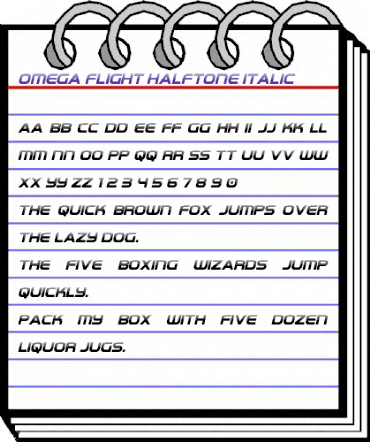 OMEGA FLIGHT HALFTONE ITALIC
AA BB CC DD EE FF GG HH II JJ KK LL
MM NN OO PP QQ RR SS TT UU VV WW
XX YY ZZ 1 2 3 4 5 6 7 8 9 0
THE QUICK BROWN FOX JUMPS OVER
THE LAZY DOG.
THE FIVE BOXING WIZARDS JUMP
QUICKLY.
PACK MY BOX WITH FIVE DOZEN
LIQUOR JUGS.